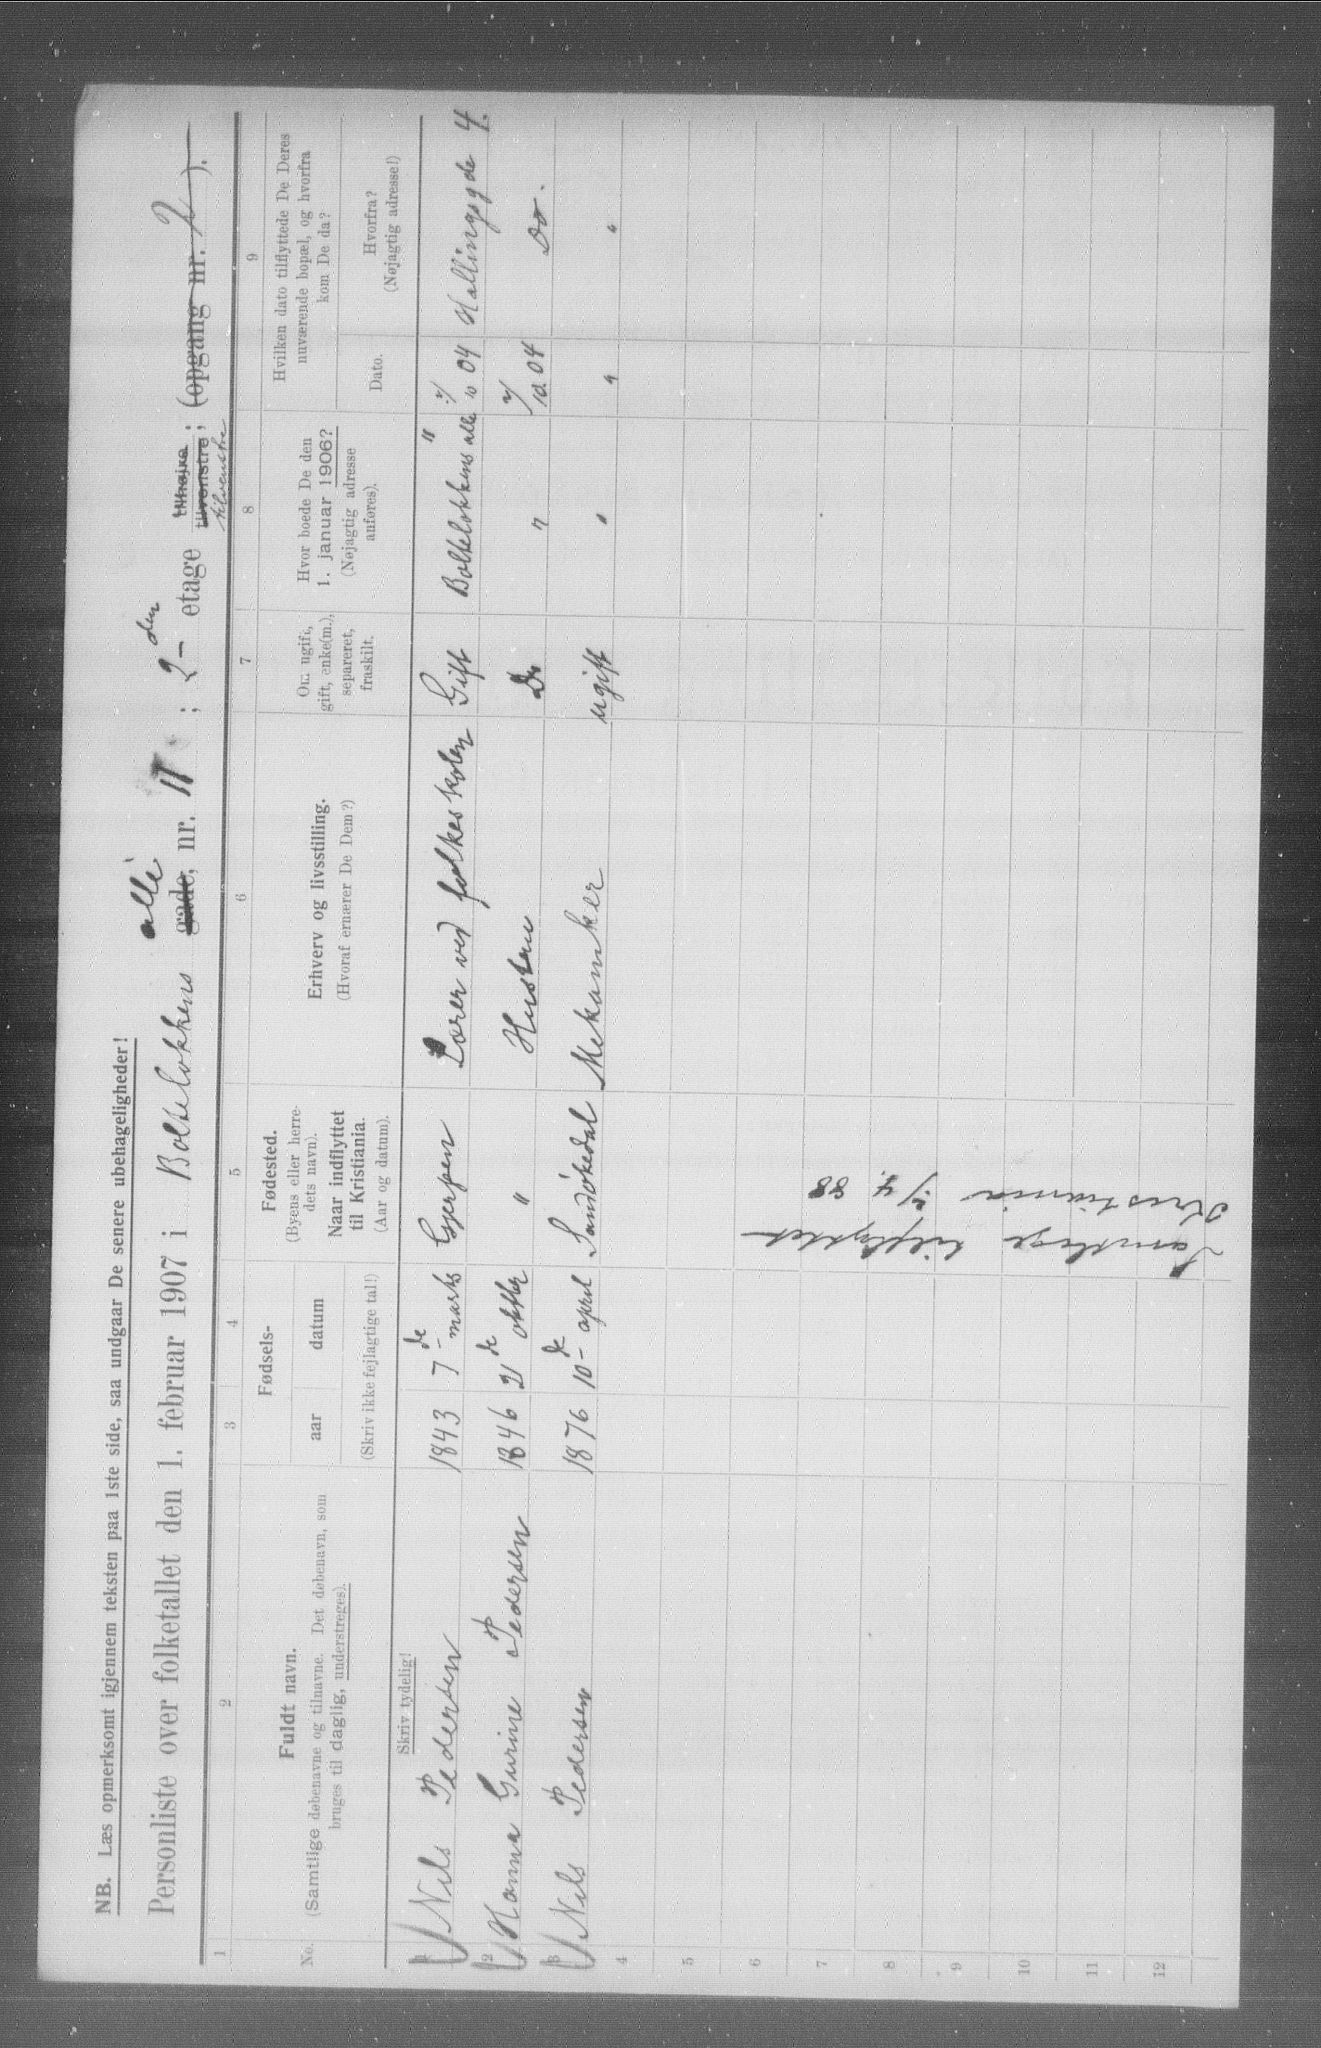 NB. Læs opmerksomt igjennem teksten paa 1ste side, saa undgaar De senere ubehageligheder!
Personliste over folketallet den 1. februar 1907 i Boltelokkens gade, alle' nr. 11 ; 2den etage tilhøjre tilvenstre tilvenstre ; (opgang nr. ).
1 2 3 4 5 6 7 8 9
No.
Fuldt navn.
(Samtlige døbenavne og tilnavne. Det døbenavn, som
bruges til daglig, understreges).
Skriv tydelig!
Fødsels-
aar datum
(Skriv ikke fejlagtige tal!)
Fødested.
(Byens eller herre-
dets navn).
Naar indflyttet
til Kristiania.
(Aar og datum).
Erhverv og livsstilling.
(Hvoraf ernærer De Dem?)
Om ugift,
gift, enke(m.),
separeret,
fraskilt.
Hvor boede De den
1. januar 1906?
(Nøjagtig adresse
anføres).
Hvilken dato tilflyttede De Deres
nuværende bopæl, og hvorfra
kom De da?
Dato.
Hvorfra?
(Nøjagtig adresse!)
1 Nils Pedersen 1843 7de marts Gjerpen Lærer ved folkeskolen Gift Boltelokkens alle 11 10 04 Hallingsgde 4.
2 Hanna Gurine Pedersen 1846 21de oktbr " Hustru Do " 10 04 Do.
3 Nils Pedersen 1876 10de april Sandøkedal Mekaniker ugift " " "
4
5
6
7
8
9
10
11
12
Samtlige
tilflyttet
Kristiania
4 88